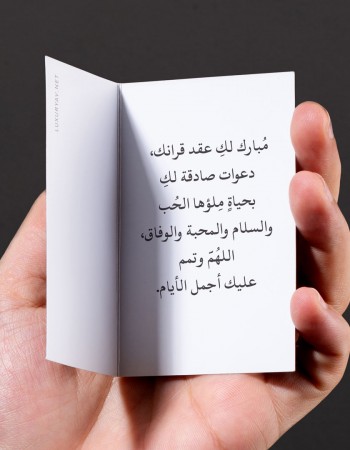 مُبارك لكِ عقد قرانك،
دعوات صادقة لكِ
بحياةٍ مِلؤها الحُب
والسلام والمحبة والوفاق،
اللهُمّ وتمم
عليك أجمل الأيام.
LUXURYBY.NET